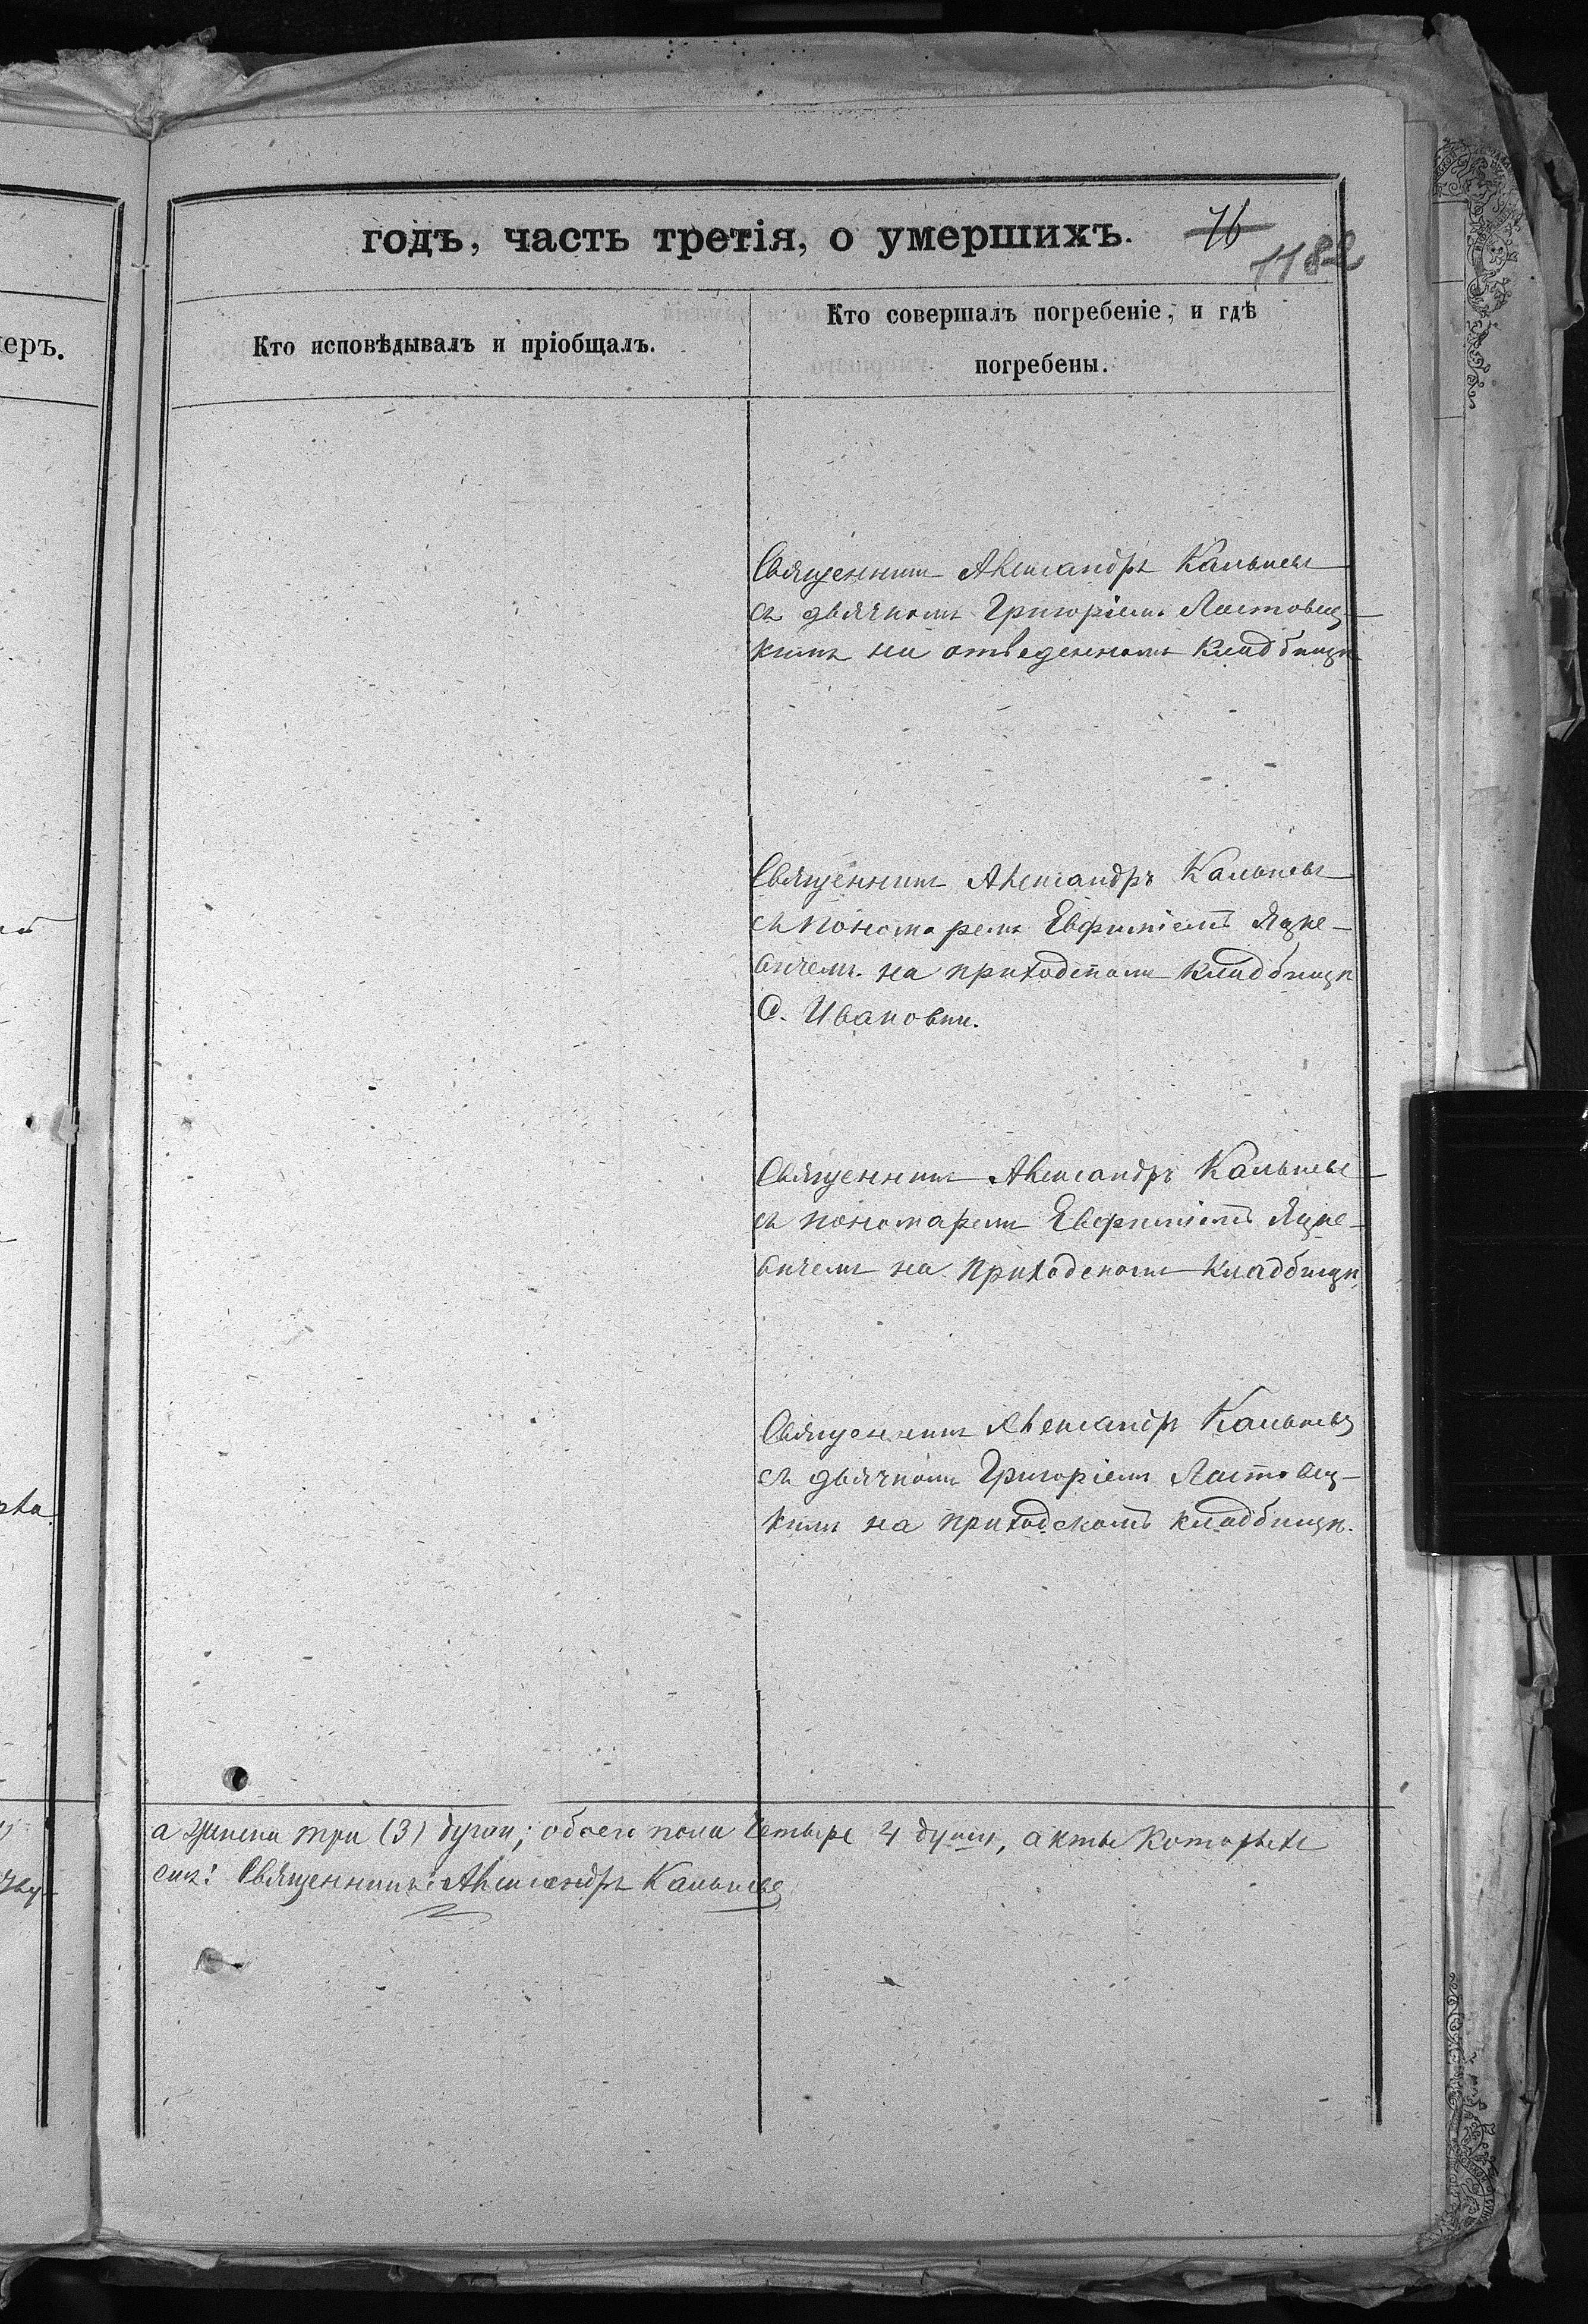 годъ, часть третія, о умершихъ. 76
1182
Кто исповѣдывалъ и пріобщалъ.
Кто совершалъ погребеніе, и гдѣ
погребены.
перъ.
Священникъ Александръ Кальневъ
съ дьячкомъ Григоріемъ Ластовец-
кимъ на отведенномъ кладбищѣ
Священникъ Александръ Кальневъ
съ пономаремъ Евфиміемъ Яцке-
вичемъ на приходскомъ кладбищѣ
С. Ивановки.
Священникъ Александръ Кальневъ
съ пономаремъ Евфиміемъ Яцке-
вичемъ на приходскомъ кладбищѣ
Священникъ Александръ Кальневъ
съ дьячкомъ Григоріемъ Ластовец-
кимъ на приходскомъ кладбищѣ.
а женска три (3) души; обоего пола четыре 4 души, акты которыхъ
Священникъ Александръ Кальневъ